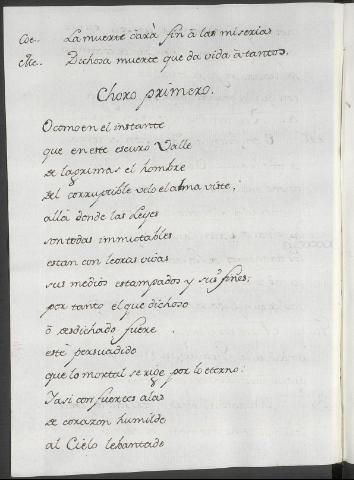 Coe.. La muerte dara fin à las miserias
Me.. Dichosa muerte que da vida à tantos.
Choro primero.
O como en el instante
que en este escuro Valle
de lagrimas el hombre
del corruptible velo el alma viste;
allà donde las Leyes
son todas immutables
estan con letras vivas
sus medios estampados y sus fines;
por tanto el que dichoso
ò desdichado fuere
estè persuadido
que lo mortal se rige por lo eterno:
Y asi con fuertes alas
de corazon humilde
al Cielo lebantado